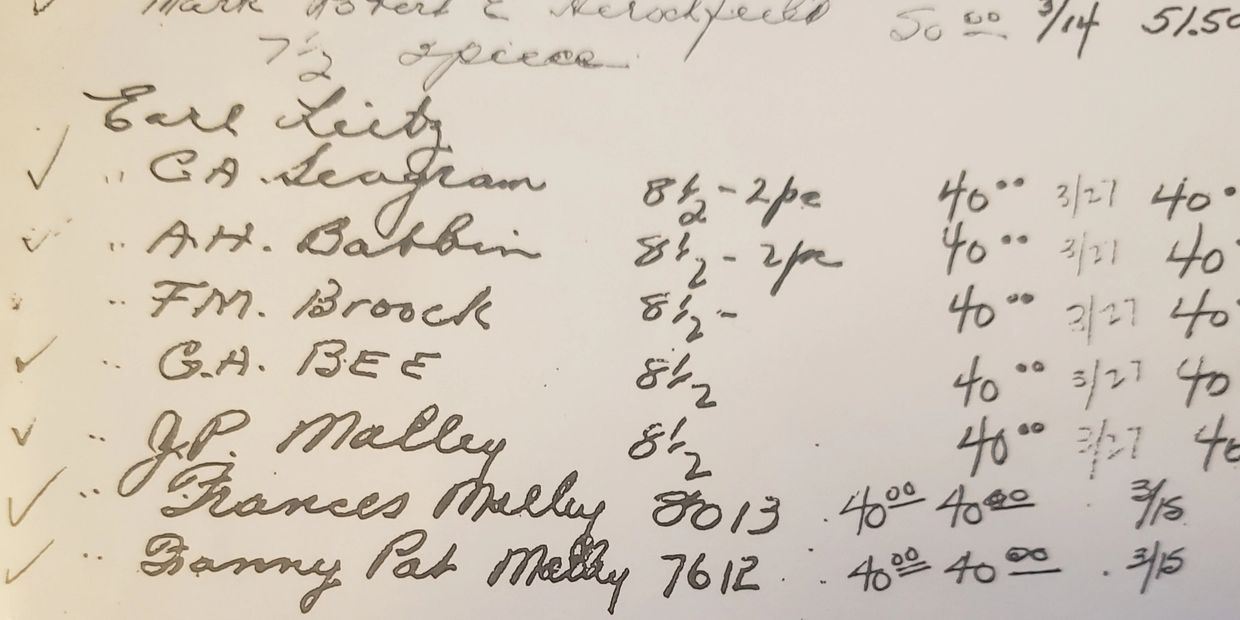 Mark Robert E 50 00 3/14 51.50
7 1/2 2 piece
Earl Lietz
✓ " G.A. Seagram 8 1/2 - 2 pc 40 00 3/27 40
✓ " A.H. Babbin 8 1/2 - 2 pc 40 00 3/27 40
" F.M. Broock 8 1/2 - 40 00 3/27 40
✓ " G.A. BEE 8 1/2 40 00 3/27 40
✓ " J.P. Malley 8 1/2 40 00 3/27 40
✓ " Frances Malley 8013 40 00 40 00 3/15
✓ " Fanny Pat Malley 7612 40 00 40 00 3/15